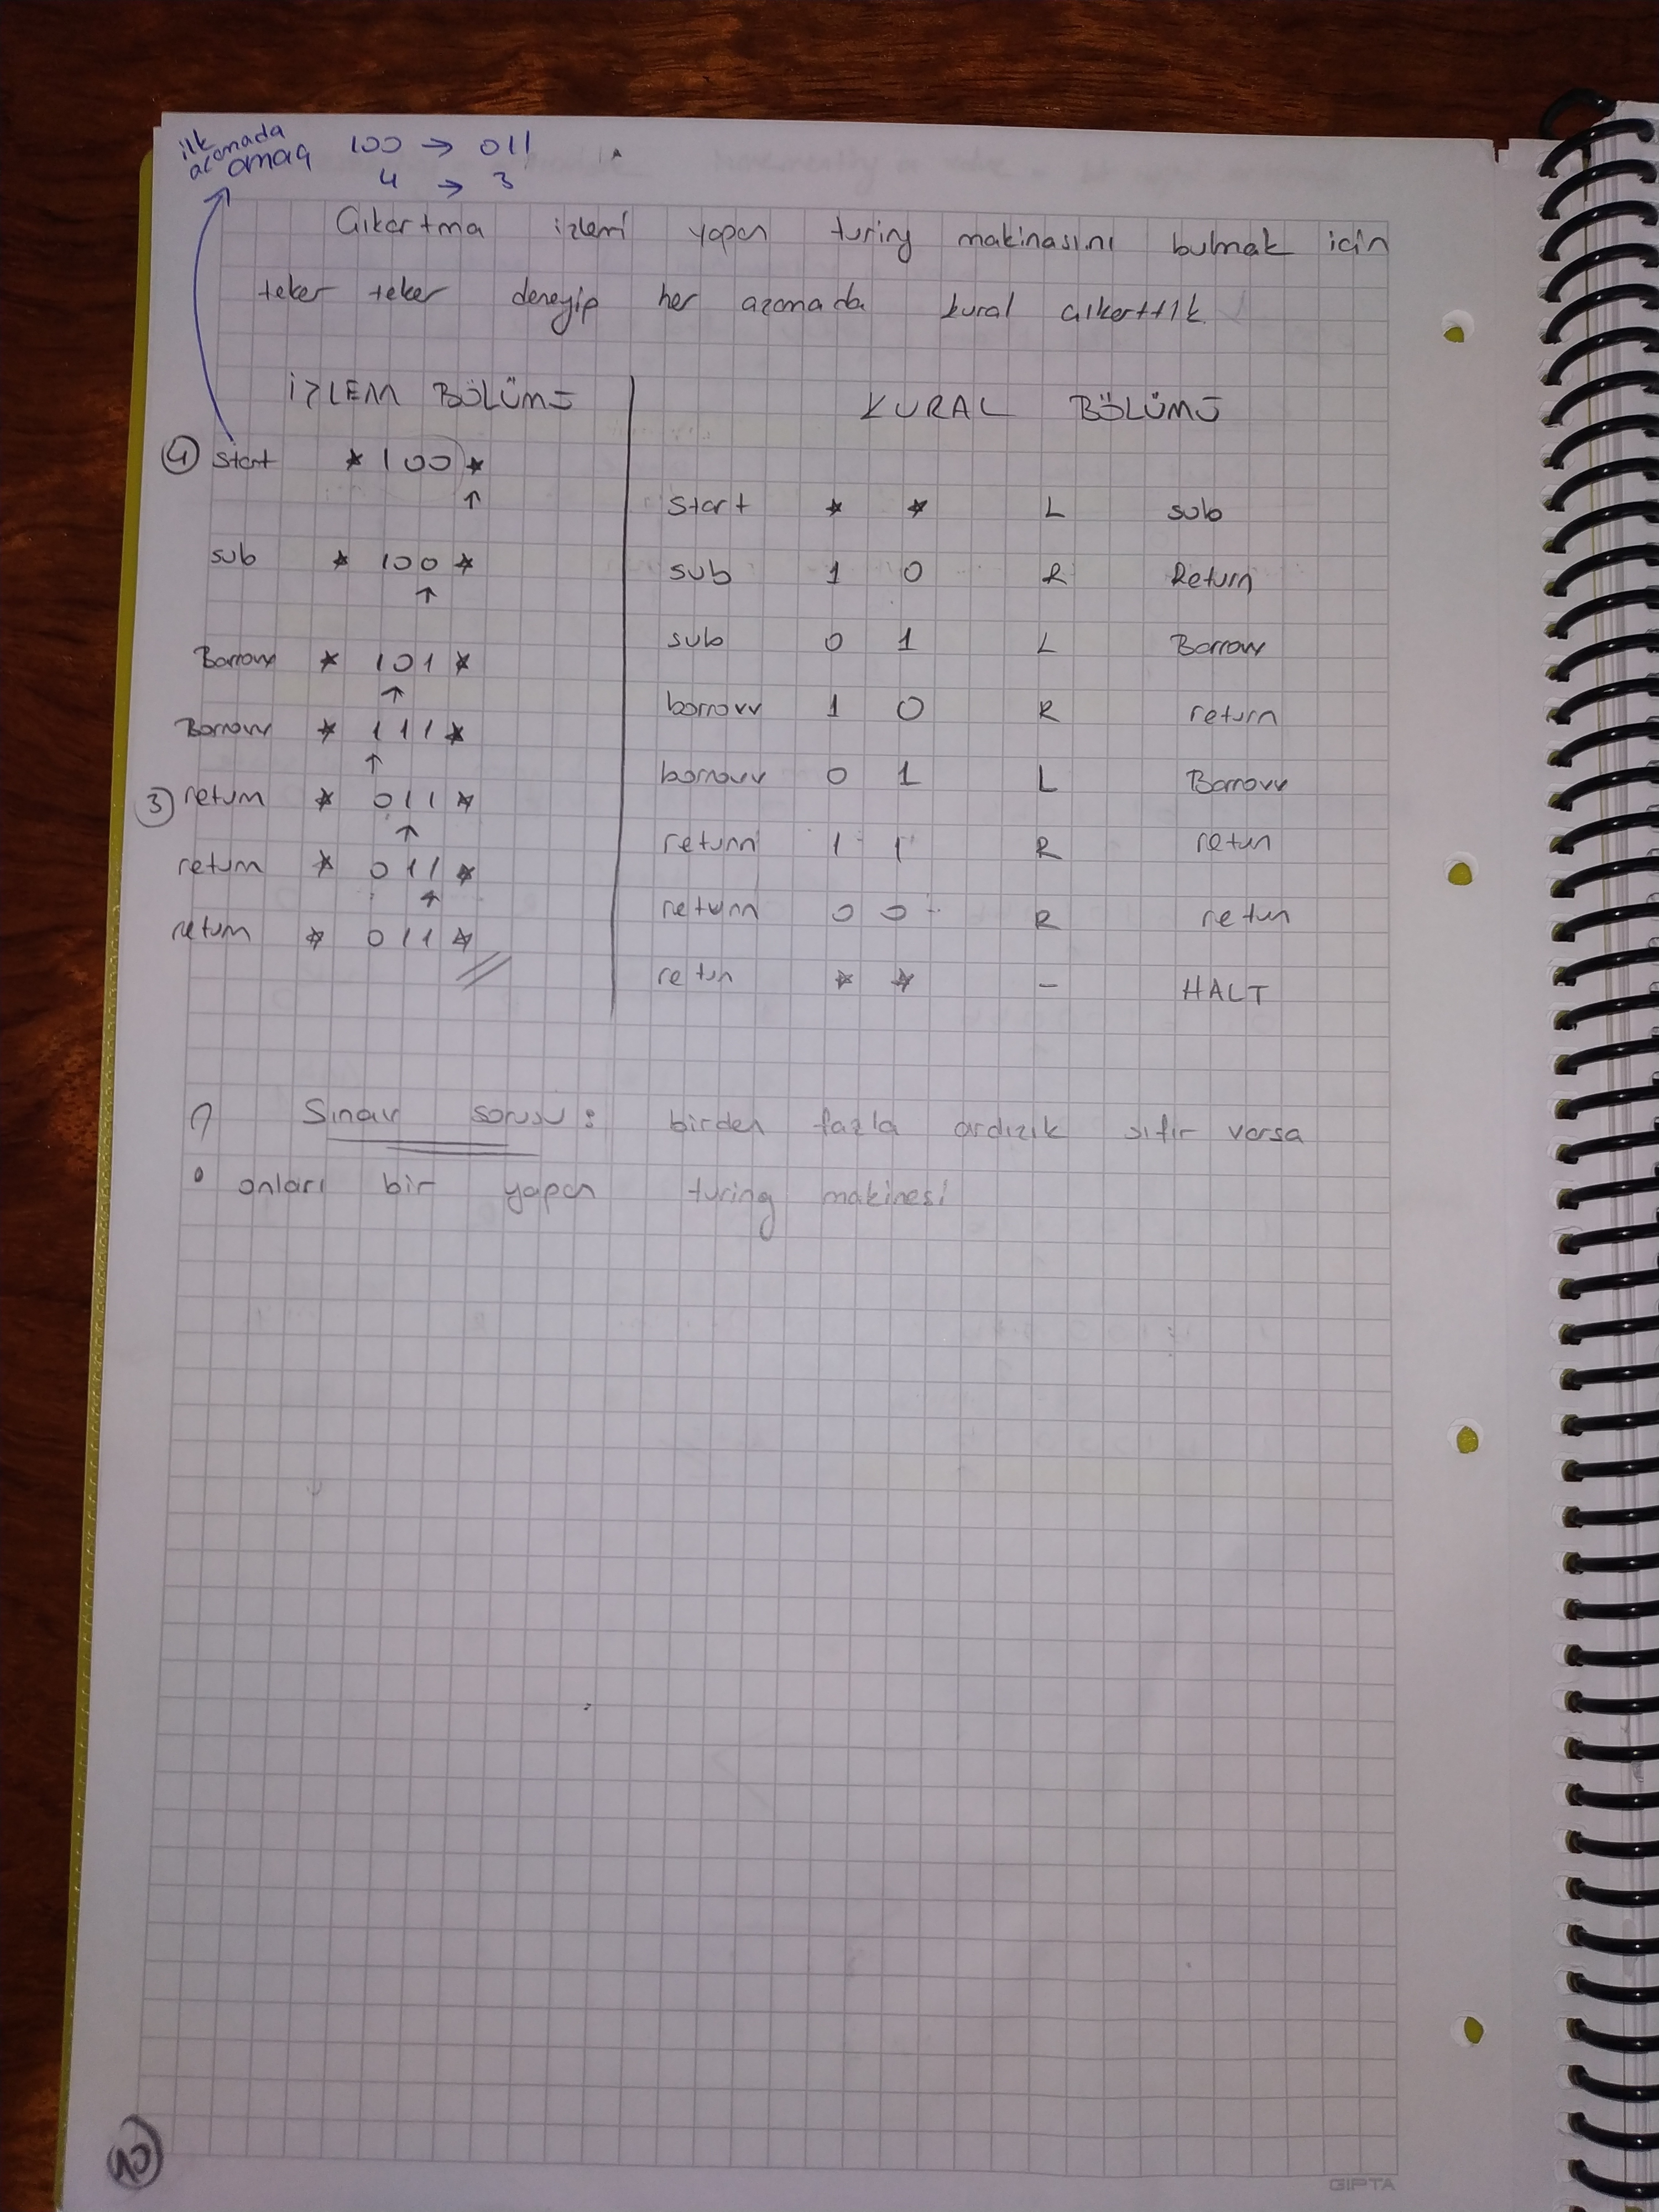 ilk
aşamada
amaç 100 → 011
4 → 3
Çıkartma işlemi yapan turing makinasını bulmak için
teker teker deneyip her aşamada kural çıkarttık.
İŞLEM BÖLÜMÜ KURAL BÖLÜMÜ
④ Start * 100 *
↑
sub * 100 *
↑
Borrow * 101 *
↑
Borrow * 111 *
↑
③ return * 011 *
↑
return * 011 *
↑
return * 011 *
Start * * L sub
sub 1 0 R Return
sub 0 1 L Borrow
borrow 1 0 R return
borrow 0 1 L Borrow
return 1 1 R return
return 0 0 R return
return * * - HALT
? Sınav sorusu : birden fazla ardışık sıfır varsa
• onları bir yapan turing makinesi
10
GIPTA